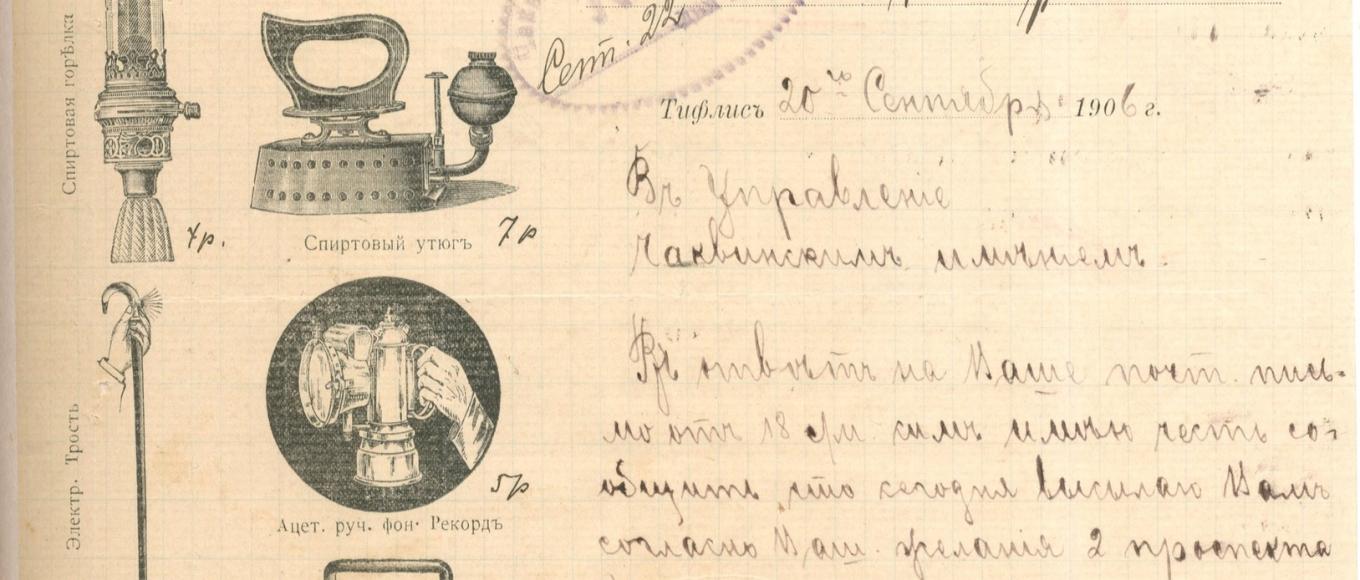 Спиртовая горѣлка
4р.
Спиртовый утюгъ 7р
Электр. Трость
Ацет. руч. фон. Рекордъ
5р
Сент. 22
Тифлисъ 20го Сентября 1906 г.
Въ Управленіе
Чаквинскимъ имѣніемъ.
Въ отвѣтъ на Ваше почт. пись-
мо отъ 18 с/м. симъ имѣю честь со-
общить что сегодня высылаю Вамъ
согласно Ваш. желанія 2 проспекта